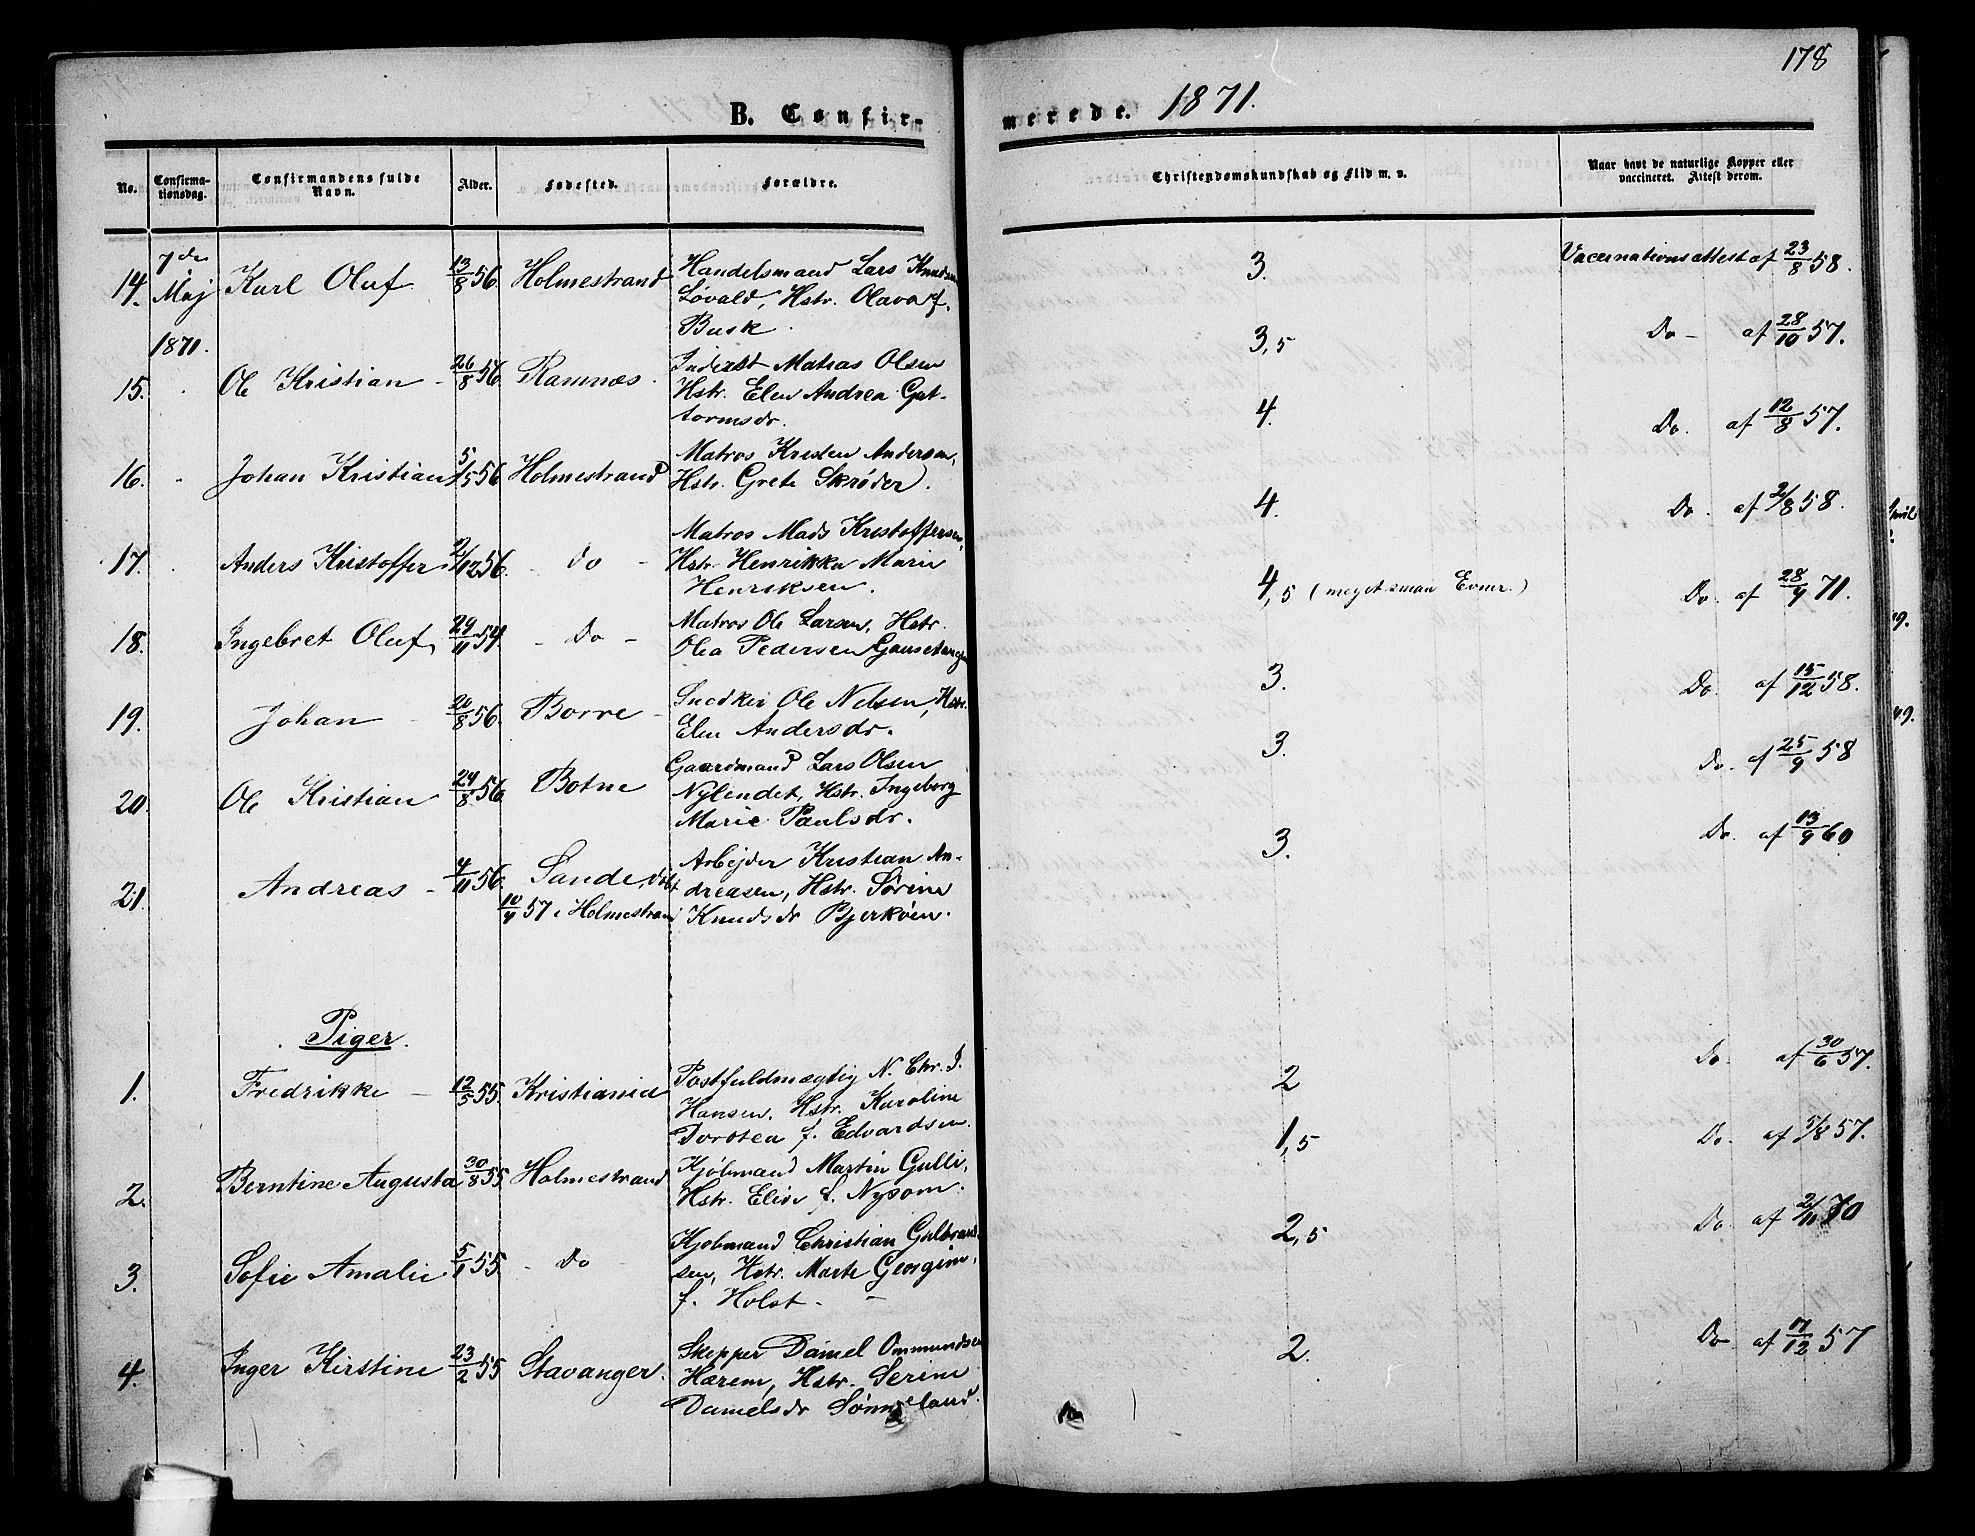 178
B. Confir-
merede. 1871.
No.
Confirma-
tionsdag.
Confirmandens fulde
Navn.
Alder.
Fødested.
Forældre.
Christendomskundskab og Flid m. v.
Naar havt de naturlige Kopper eller
vaccineret. Attest derom.
7de
14. Maj Karl Oluf 13/8 56. Holmestrand Handelsmand Lars Knudsen
Løvald, Hstr. Olava f.
Busk.
3. Vaccinationsattest af 23/8 58.
1871.
15. Ole Kristian - 26/8 56. Ramnes. Inderst Matias Olsen
Hstr. Elen Andrea Gut-
tormsdr.
3,5 Do - af 28/10 57.
16. Johan Kristian 5/5 56 Holmestrand Matros Kristen Andersen,
Hstr. Grete Skrøder.
4. Do. af 12/8 57.
17. Anders Kristoffer 2/12 56. - Do - Matros Mads Kristoffersen,
Hstr. Henrikke Marie
Henriksen.
4. Do. af 2/8 58.
18. Ingebret Oluf 29/11 54. - Do - Matros Ole Larsen, Hstr.
Olea Pedersen Gausetangen
4,5 (meget smaa Evner.) Do. af 28/4 71.
19. Johan - 20/8 56. Borre - Snedker Ole Nelsen, Hstr.
Elen Andersdr.
3. Do. af 15/12 58.
20. Ole Kristian 24/8 56. Botne Gaardmand Lars Olsen
Nylendet, Hstr. Ingeborg
Marie Paulsdr.
3. Do. af 25/9 58
21. Andreas - 4/11 56. Sande, døbt Arbejder Kristian An-
10/4 57 i Holmestrand dreasen, Hstr. Sørine
Knudsdr Bjerkøen.
3. Do. af 13/9 60
Piger.
1. Fredrikke - 12/5 55. Kristiania Postfuldmægtig N. Chr. I.
Hansen, Hstr. Karoline
Dorotea f. Edvardsen.
2 Do. af 30/6 57.
2. Berntine Augusta 30/8 55. Holmestrand Kjøbmand Martin Gulli,
Hstr. Elise f. Nysom.
1,5 Do. af 5/8 57.
3. Sofie Amalie 5/1 55. - Do - Kjøbmand Christian Gulbrand-
sen, Hstr. Marte Georgine,
f. Holst. -
2,5 Do. af 2/10 70
4. Inger Kirstine 23/2 55 Stavanger. Skipper Daniel Ommundsen
Hærem, Hstr. Serine
Danielsdr Sønneland.
2. Do af 17/12 57